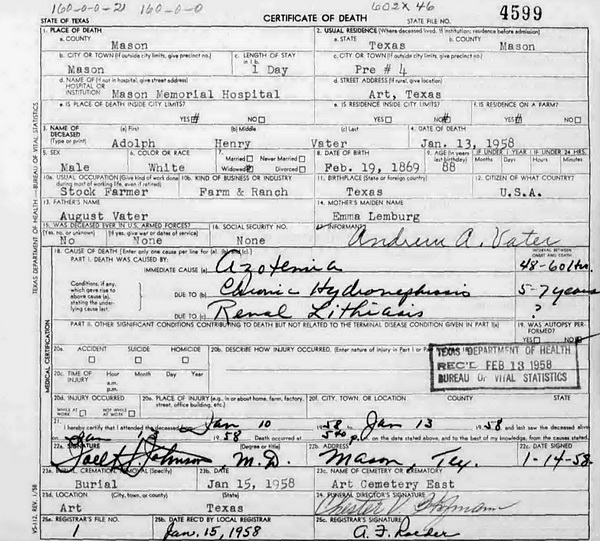 160-0-0-21 160-0-0 602X 46
STATE OF TEXAS CERTIFICATE OF DEATH STATE FILE NO. 4599
1. PLACE OF DEATH 2. USUAL RESIDENCE (Where deceased lived. If institution: residence before admission)
a. COUNTY Mason a. STATE Texas b. COUNTY Mason
b. CITY OR TOWN (If outside city limits, give precinct no.) Mason c. LENGTH OF STAY in 1 b. 1 Day c. CITY OR TOWN (If outside city limits, give precinct no.) Pre # 4
d. NAME OF (If not in hospital, give street address) HOSPITAL OR INSTITUTION Mason Memorial Hospital d. STREET ADDRESS (If rural, give location) Art, Texas
e. IS PLACE OF DEATH INSIDE CITY LIMITS? YES NO e. IS RESIDENCE INSIDE CITY LIMITS? YES NO f. IS RESIDENCE ON A FARM? YES NO
3. NAME OF DECEASED (Type or print) (a) First Adolph (b) Middle Henry (c) Last Vater 4. DATE OF DEATH Jan. 13, 1958
5. SEX Male 6. COLOR OR RACE White 7. Married Never Married Widowed Divorced 8. DATE OF BIRTH Feb. 19, 1869 9. AGE (In years last birthday) 88 IF UNDER 1 YEAR Months Days IF UNDER 24 HRS. Hours Minutes
10a. USUAL OCCUPATION (Give kind of work done during most of working life, even if retired) Stock Farmer 10b. KIND OF BUSINESS OR INDUSTRY Farm & Ranch 11. BIRTHPLACE (State or foreign country) Texas 12. CITIZEN OF WHAT COUNTRY? U.S.A.
13. FATHER'S NAME August Vater 14. MOTHER'S MAIDEN NAME Emma Lemburg
15. WAS DECEASED EVER IN U.S. ARMED FORCES? (Yes, no, or unknown) No (If yes, give war or dates of service) None 16. SOCIAL SECURITY NO. None 17. INFORMANT Andrew A. Vater
18. CAUSE OF DEATH (Enter only one cause per line for (a), (b), and (c).) INTERVAL BETWEEN ONSET AND DEATH
PART I. DEATH WAS CAUSED BY:
IMMEDIATE CAUSE (a) Azotemia 48-60 hr.
Conditions, if any, which gave rise to above cause (a), stating the underlying cause last. DUE TO (b) Chronic Hydronephrosis 5-7 years
DUE TO (c) Renal Lithiasis ?
PART II. OTHER SIGNIFICANT CONDITIONS CONTRIBUTING TO DEATH BUT NOT RELATED TO THE TERMINAL DISEASE CONDITION GIVEN IN PART I(a) 19. WAS AUTOPSY PERFORMED? YES NO
20a. ACCIDENT SUICIDE HOMICIDE 20b. DESCRIBE HOW INJURY OCCURRED. (Enter nature of injury in Part I or Par
TEXAS DEPARTMENT OF HEALTH
REC'D FEB 13 1958
BUREAU OF VITAL STATISTICS
20c. TIME OF INJURY Hour a.m. p.m. Month Day Year
20d. INJURY OCCURRED WHILE AT WORK NOT WHILE AT WORK 20e. PLACE OF INJURY (e.g., in or about home, farm, factory, street, office building, etc.) 20f. CITY, TOWN, OR LOCATION COUNTY STATE
21. I hereby certify that I attended the deceased Jan 10 1958 to Jan 13 1958 and last saw the deceased alive
on Jan 13 1958 Death occurred at p. on the date stated above, and to the best of my knowledge, from the causes stated.
22a. SIGNATURE Johnson (Degree or title) M.D. 22b. ADDRESS Mason, Tex. 22c. DATE SIGNED 1-14-58.
23a. BURIAL, CREMATION, REMOVAL (Specify) Burial 23b. DATE Jan 15, 1958 23c. NAME OF CEMETERY OR CREMATORY Art Cemetery East
23d. LOCATION (City, town, or county) (State) Art Texas 24. FUNERAL DIRECTOR'S SIGNATURE Chester V.
25a. REGISTRAR'S FILE NO. 1 25b. DATE REC'D BY LOCAL REGISTRAR Jan. 15, 1958 25c. REGISTRAR'S SIGNATURE
TEXAS DEPARTMENT OF HEALTH—BUREAU OF VITAL STATISTICS
MEDICAL CERTIFICATION
VS-112, REV. 1/58